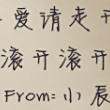 爱请走开
滚开滚开
From:小辰